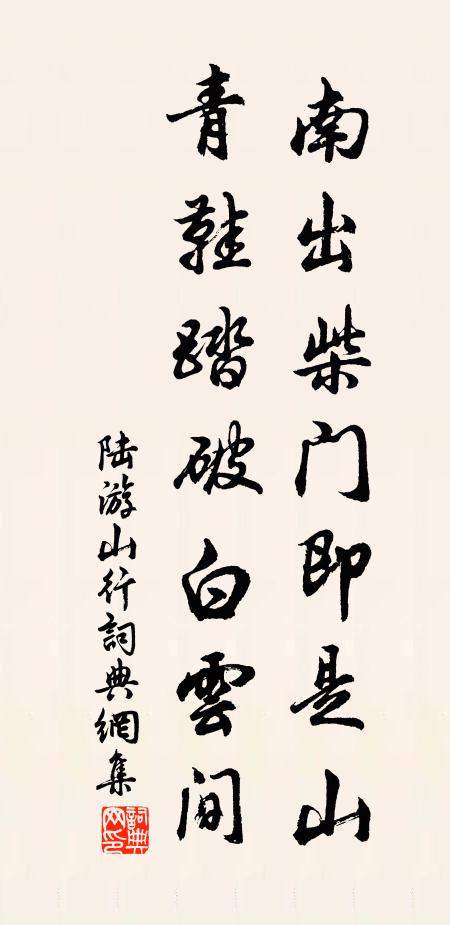 南出柴门即是山
青鞵踏破白雲间
陆游山行詞典網集
詞典网印